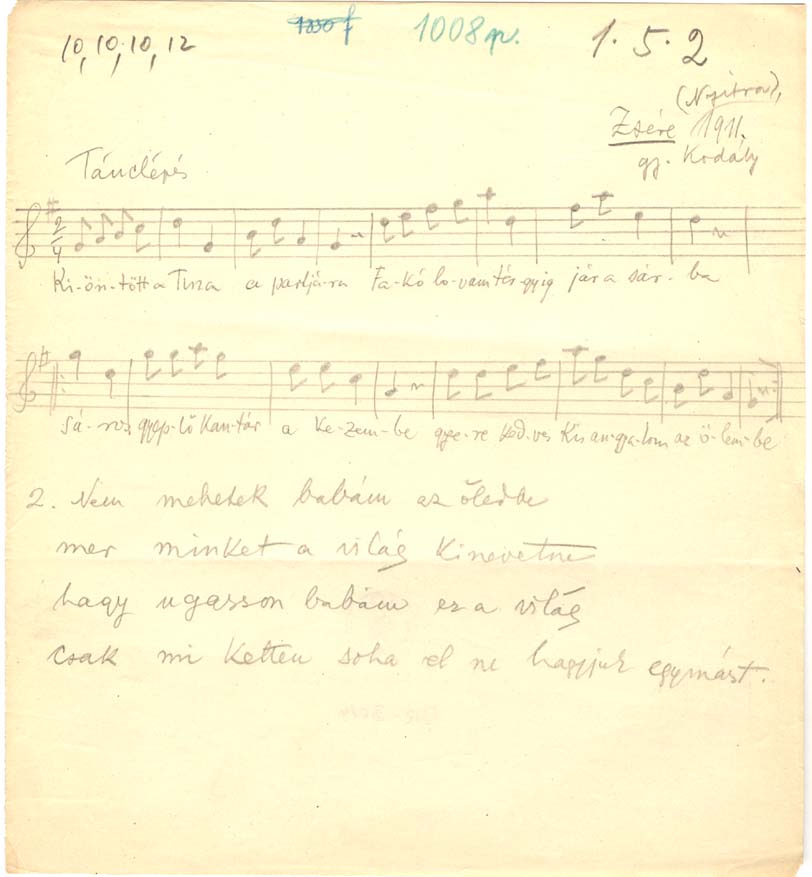 10, 10, 10, 12 1230 f 1008 gr. 1. 5. 2
(Nyitra),
Zsére 1911.
gy. Kodály
Tánclépés
2/4
Ki-ön-tött a Tisza a partjá-ra Fa-kó lo-vam tér-gyig jár a sár-ba
Sá-ros gyep-lő kan-tár a ke-zem-be gye-re ked-ves kis an-gya-lom az ö-lem-be
2. Nem mehetek babám az öledbe
mer minket a világ kinevetne
hagy ugasson babám ez a világ
csak mi ketten soha el ne hagyjuk egymást.